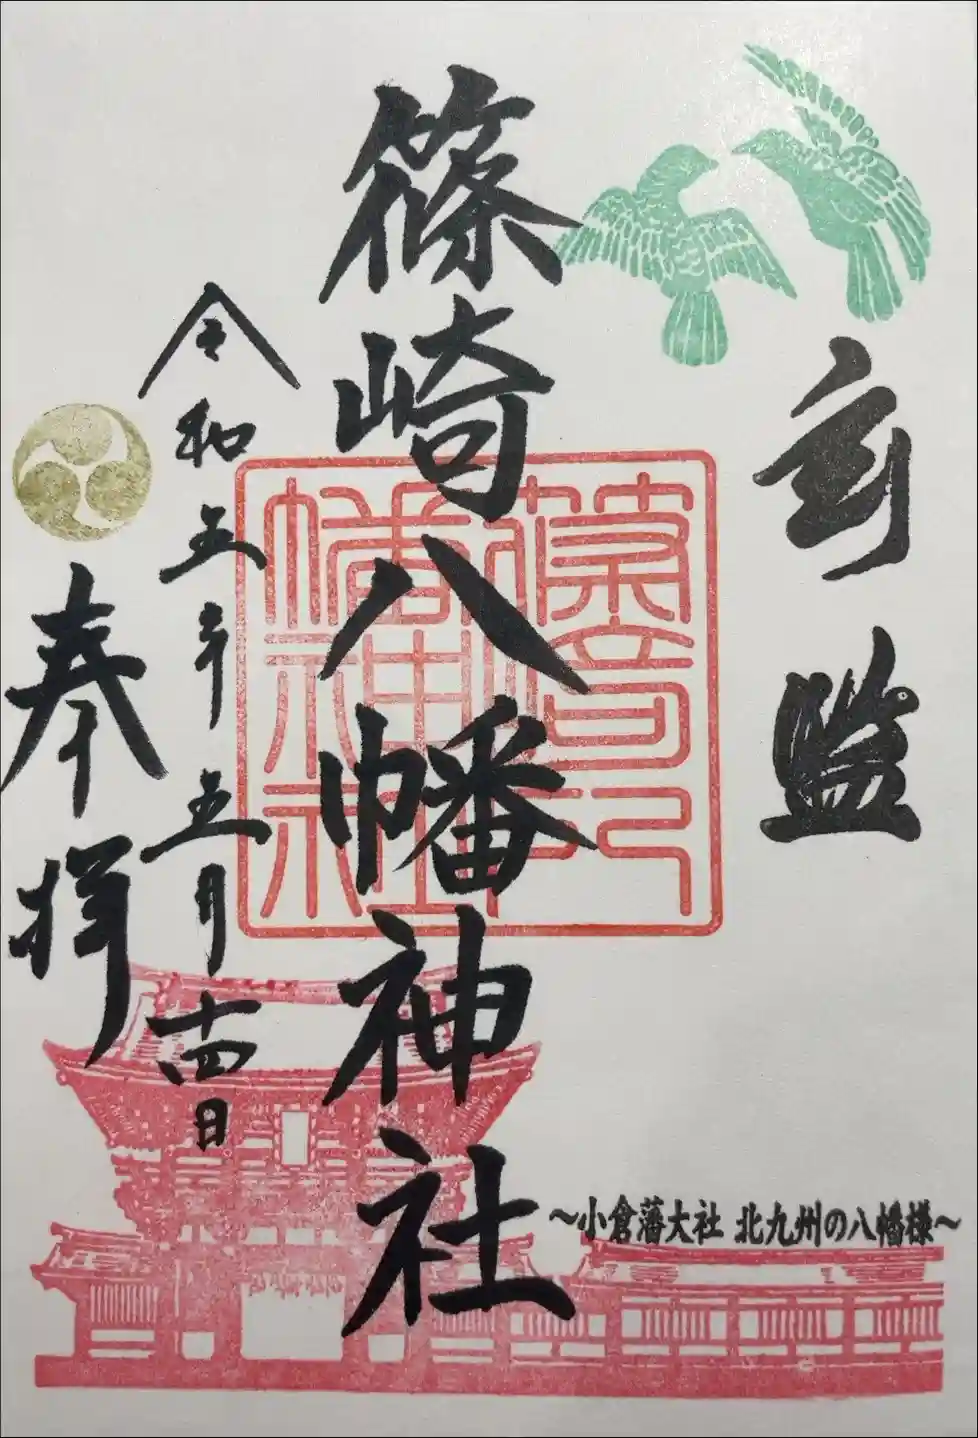 篠崎八幡神社
篠崎八幡神社
令和五年五月十四日
奉拝
～小倉藩大社 北九州の八幡様～